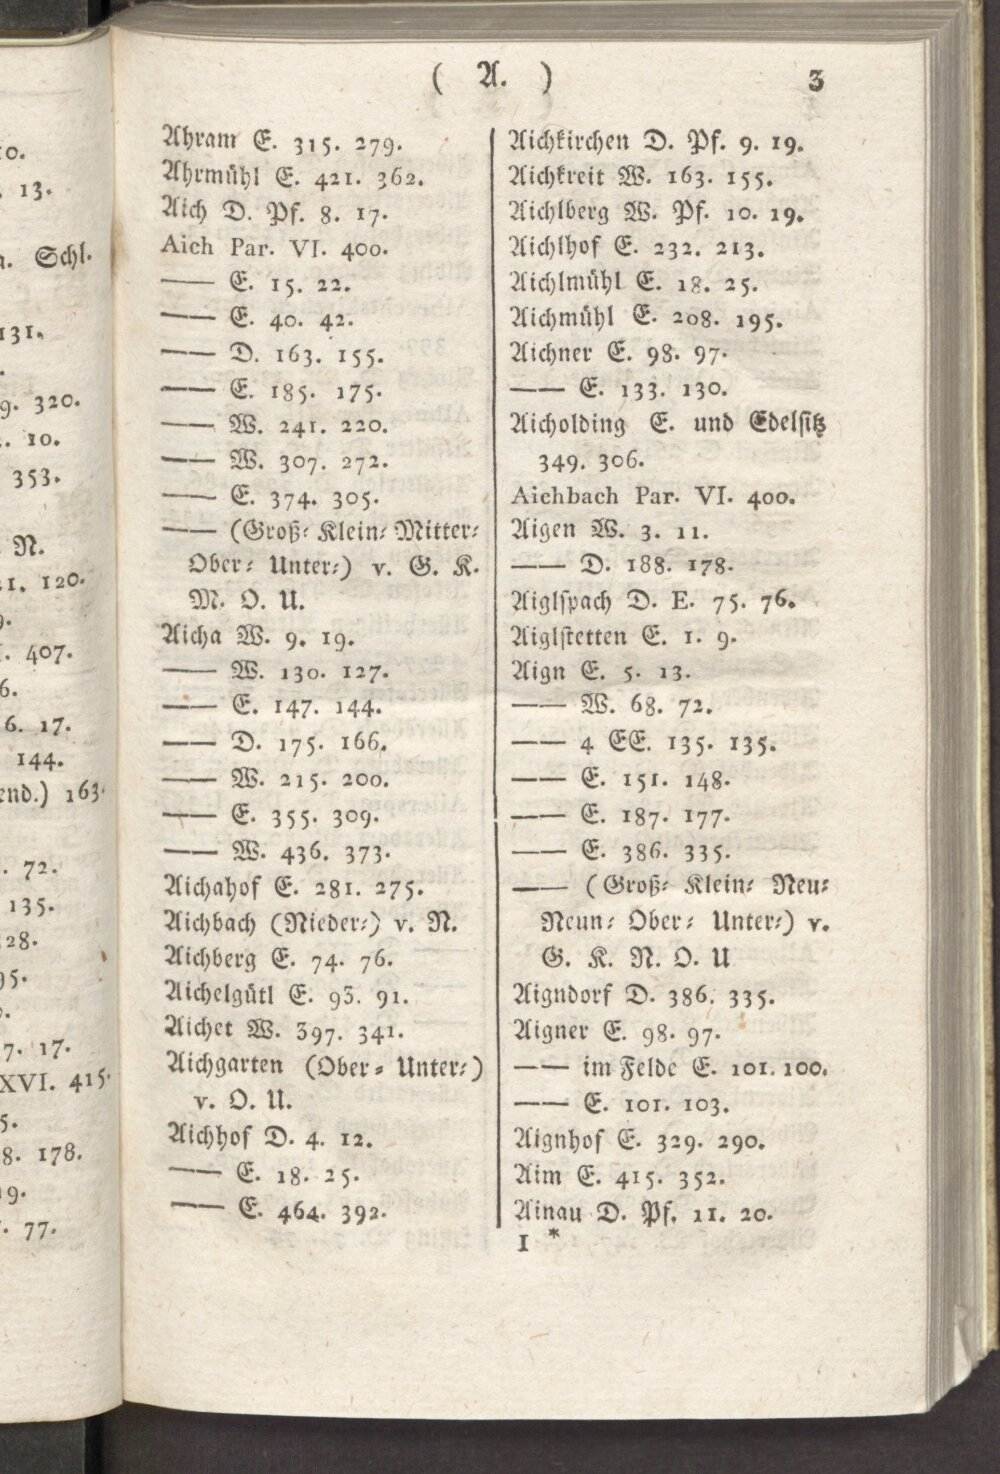 10.
13.
a. Schl.
131.
9. 320.
10.
353.
N.
21. 120.
407.
6.
6. 17.
144.
end.) 163.
72.
135.
28.
95.
7. 17.
XVI. 415.
5.
8. 178.
19.
77.
( A. ) 3
Ahram E. 315. 279.
Ahrmühl E. 421. 362.
Aich D. Pf. 8. 17.
Aich Par. VI. 400.
—— E. 15. 22.
—— E. 40. 42.
—— D. 163. 155.
—— E. 185. 175.
—— W. 241. 220.
—— W. 307. 272.
—— E. 374. 305.
—— (Groß- Klein- Mitter-
Ober- Unter-) v. G. K.
M. O. U.
Aicha W. 9. 19.
—— W. 130. 127.
—— E. 147. 144.
—— D. 175. 166.
—— W. 215. 200.
—— E. 355. 309.
—— W. 436. 373.
Aichahof E. 281. 275.
Aichbach (Nieder-) v. N.
Aichberg E. 74. 76.
Aichelgütl E. 93. 91.
Aichet W. 397. 341.
Aichgarten (Ober- Unter-)
v. O. U.
Aichhof D. 4. 12.
—— E. 18. 25.
—— E. 464. 392.
Aichkirchen D. Pf. 9. 19.
Aichkreit W. 163. 155.
Aichlberg W. Pf. 10. 19.
Aichlhof E. 232. 213.
Aichlmühl E. 18. 25.
Aichmühl E. 208. 195.
Aichner E. 98. 97.
—— E. 133. 130.
Aicholding E. und Edelsitz
349. 306.
Aiehbach Par. VI. 400.
Aigen W. 3. 11.
—— D. 188. 178.
Aiglspach D. E. 75. 76.
Aiglstetten E. 1. 9.
Aign E. 5. 13.
—— W. 68. 72.
—— 4 EE. 135. 135.
—— E. 151. 148.
—— E. 187. 177.
—— E. 386. 335.
—— (Groß- Klein- Neu-
Neun- Ober- Unter-) v.
G. K. N. O. U
Aigndorf D. 386. 335.
Aigner E. 98. 97.
—— im Felde E. 101. 100.
—— E. 101. 103.
Aignhof E. 329. 290.
Aim E. 415. 352.
Ainau D. Pf. 11. 20.
1 *